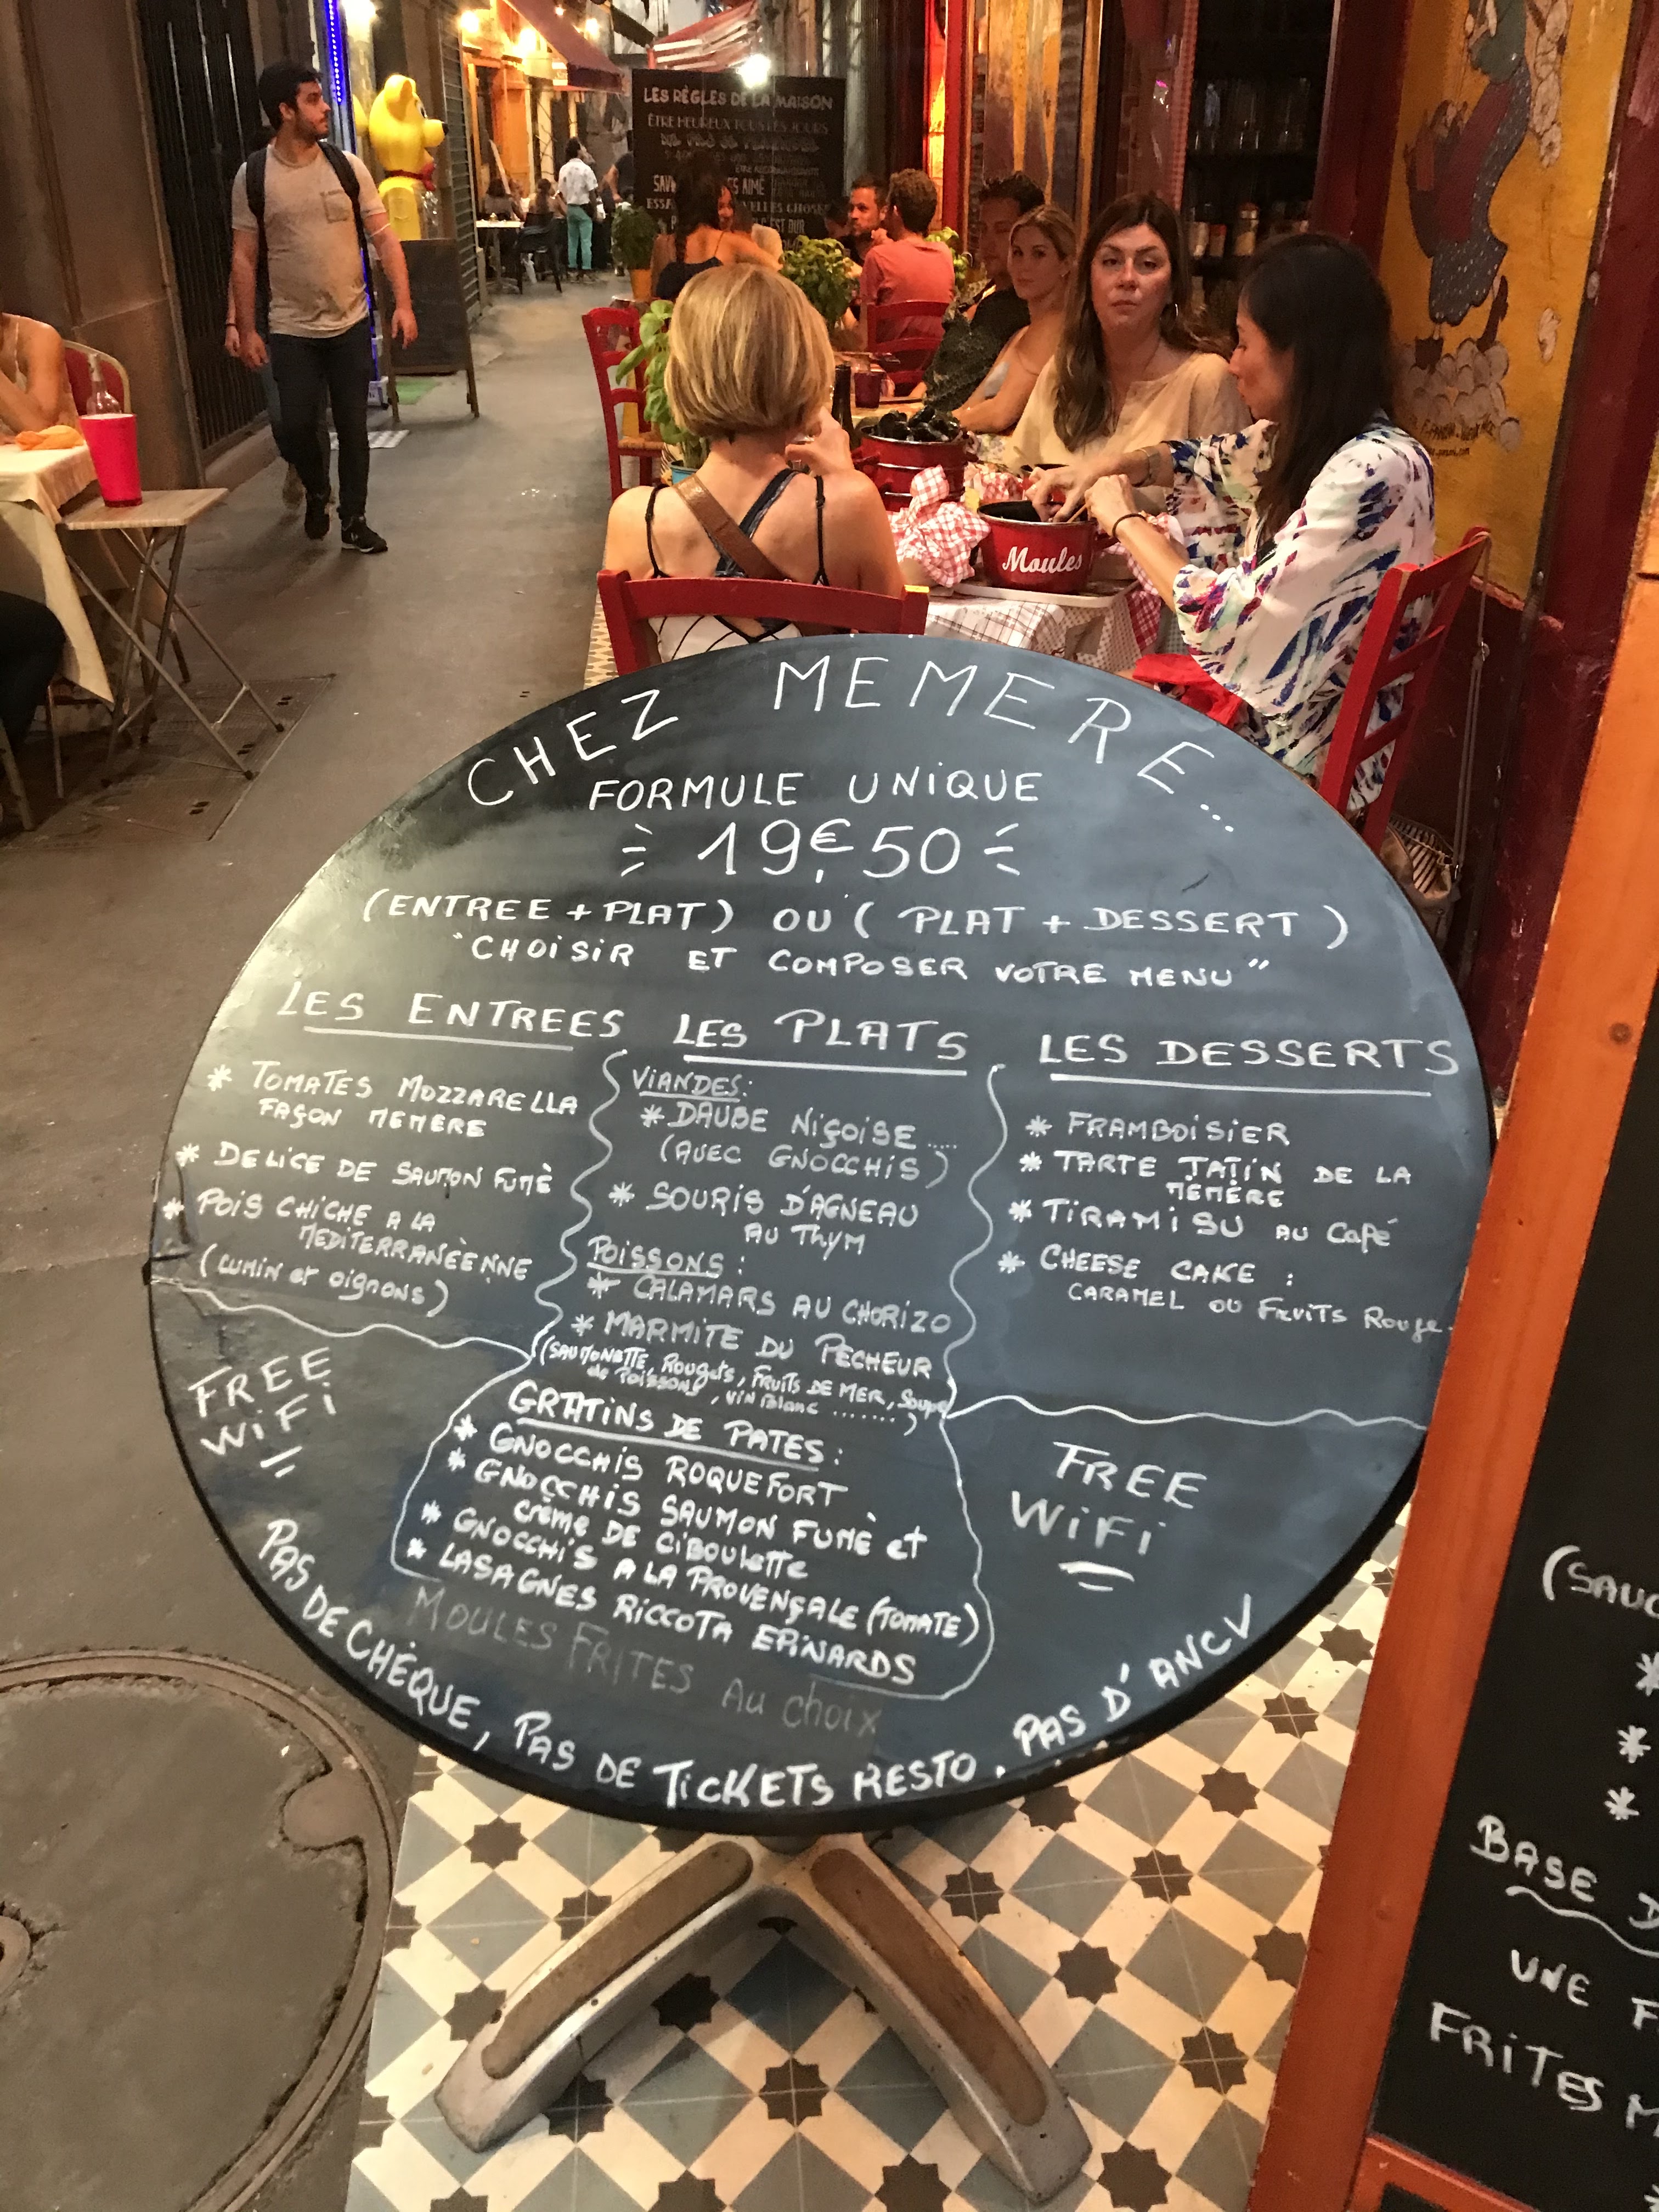 LES RÈGLES DE LA MAISON
ÊTRE HEUREUX TOUS LES JOURS
Moules
CHEZ MEMERE...
FORMULE UNIQUE
19,€50
(ENTREE + PLAT) OU ( PLAT + DESSERT )
"CHOISIR ET COMPOSER VOTRE MENU"
LES ENTREES
* TOMATES MOZZARELLA
FAÇON MEMERE
* DELICE DE SAUMON FUMÈ
* POIS CHICHE A LA
MEDITERRANÈENNE
(CUMIN et oignons)
LES PLATS
VIANDES:
* DAUBE NIÇOISE ....
(AVEC GNOCCHIS)
* SOURIS D'AGNEAU
AU THYM
POISSONS :
* CALAMARS AU CHORIZO
* MARMITE DU PÊCHEUR
(SAUMONETTE, Rougets, FRUITS DE MER, Soupe
de POISSONS, VIN Blanc .......)
GRATINS DE PATES :
* GNOCCHIS ROQUEFORT
* GNOCCHIS SAUMON FUMÈ et
crème DE CIBOULETTE
* GNOCCHIS A LA PROVENÇALE (TOMATE)
* LASAGNES RICCOTA EPINARDS
MOULES FRITES Au choix
LES DESSERTS
* FRAMBOISIER
* TARTE TATIN DE LA
MEMÈRE
* TIRAMISU AU CAFÉ
* CHEESE CAKE :
CARAMEL OU FRUITS Rouge.
FREE
WIFI
FREE
WIFI
PAS DE CHÈQUE, PAS DE TICKETS RESTO. PAS D'ANCV
*
*
*
BASE
UNE
FRITES